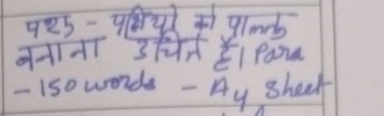 पशु - पक्षियों को पालतू
बनाना उचित है। Para
- 150 words - A4 sheet